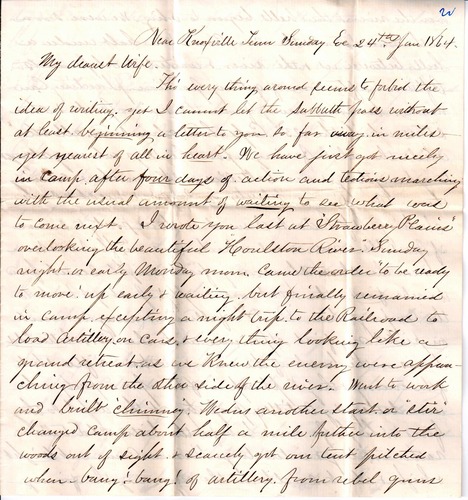 Near Knoxville Tenn Sunday Ev 24th Jan 1864.
My dearest Wife.
Tho' every thing around seems to forbid the
idea of writing, yet I cannot let the sabbath pass without
at least beginning a letter to you so far away in miles
yet nearest of all in heart. We have just got nicely
in camp after four days of action and tedious marching
with the usual amount of waiting to see what was
to come next. I wrote you last at "Strawberry Plains"
overlooking the beautiful Houlston River. Sunday
night or early Monday morn. Came the order to be ready
to move up early & waiting but finally remained
in camp excepting a night trip to the Railroad to
load Artillery on cars, & every thing looking like a
grand retreat as we knew the enemy were approa-
ching from the other side of the river. Went to work
and built 'chimney'. Wednes another start or "stir"
changed camp about half a mile further into the
woods out of sight & scarcely got our tent pitched
when bang! bang! of artillery from rebel guns